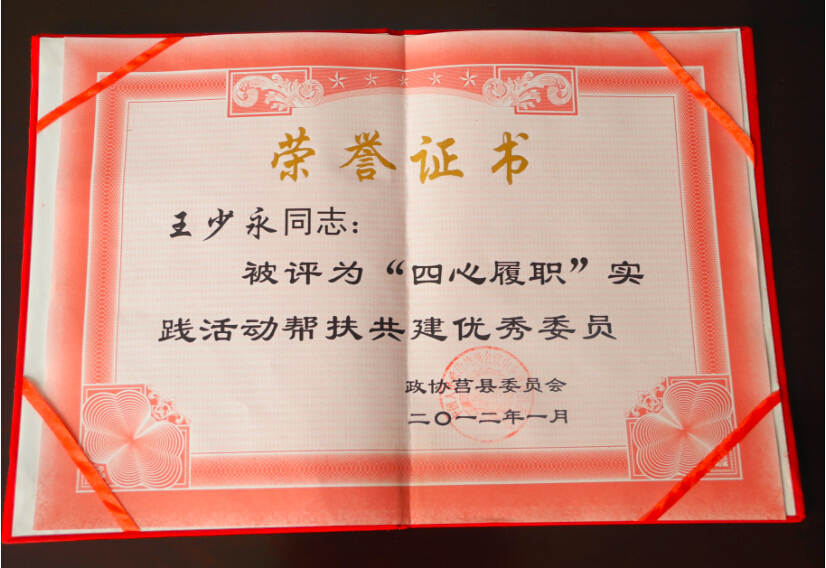 荣誉证书
王少永同志：
被评为“四心履职”实
践活动帮扶共建优秀委员
政协莒县委员会
二〇一二年一月